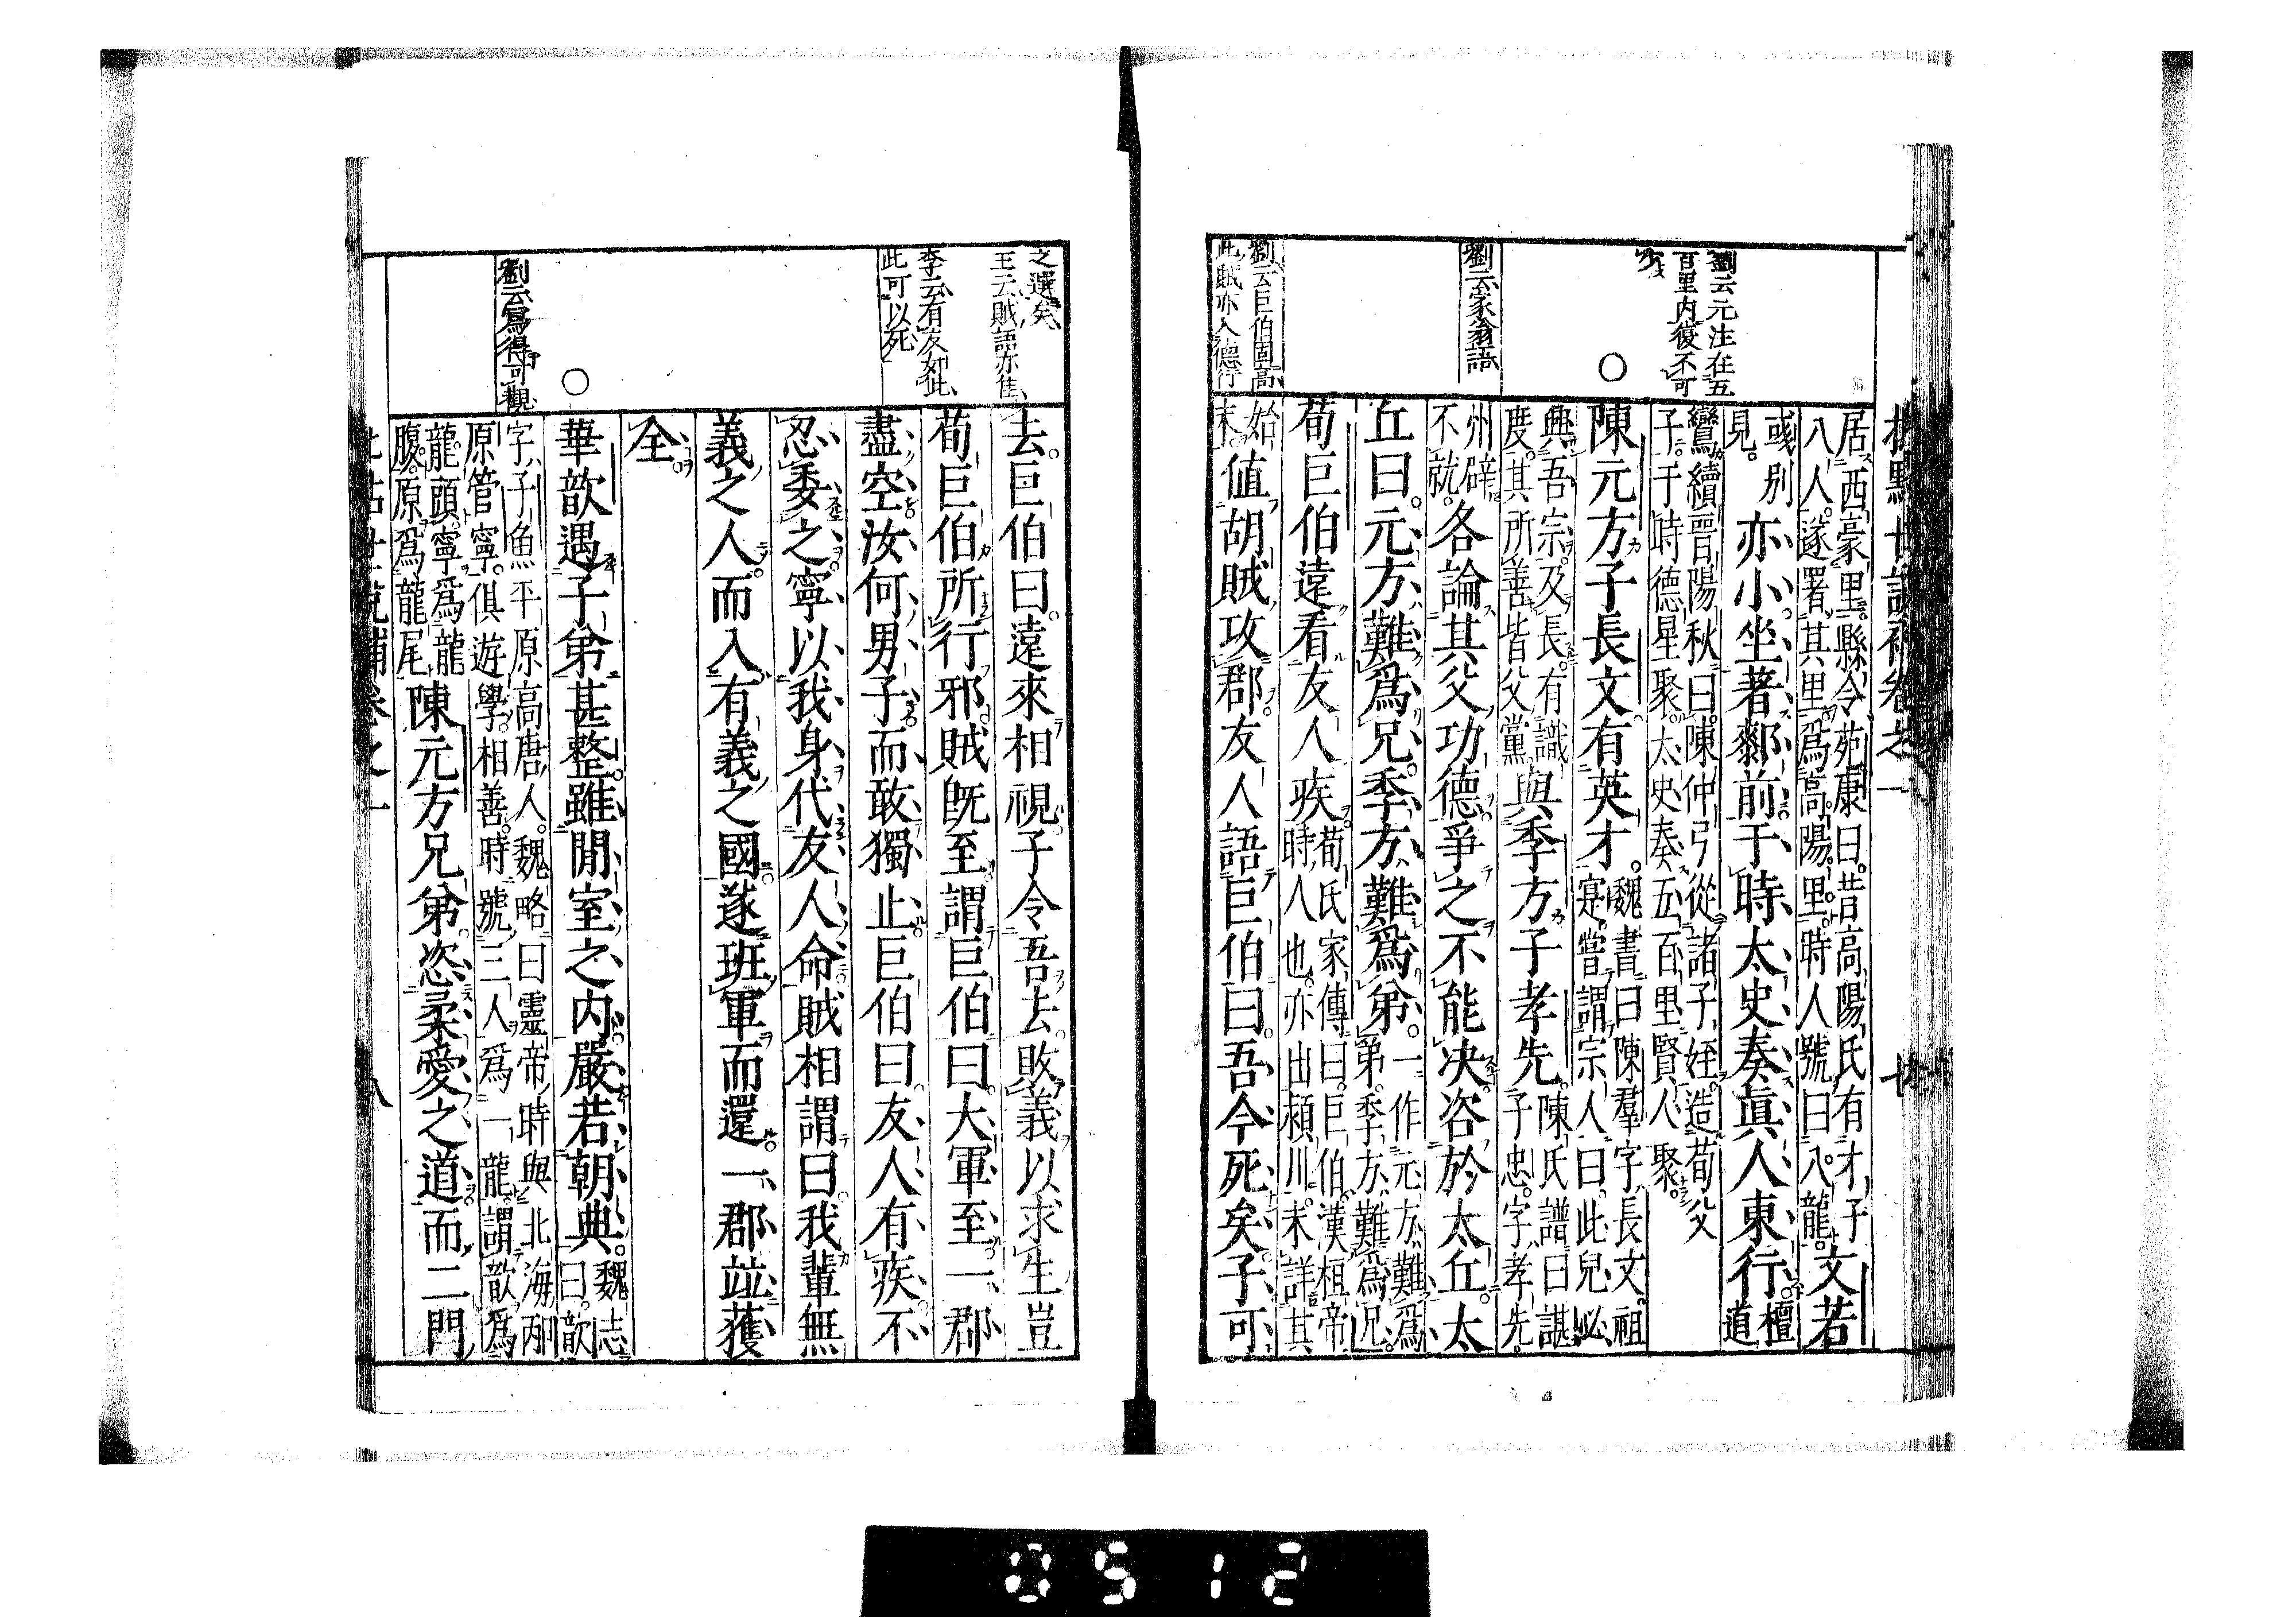 劉云元注在五
百里内復不可
少
劉云家翁語
劉云巨伯固高
此賊亦入德行
居西豪里縣令苑康曰昔高陽氏有才子
八人遂署其里爲高陽里時人號曰八龍文若
或別
見亦小坐著鄰前于時太史奏眞人東行檀
道
鸞續晉陽秋曰陳仲弓從諸子姪造荀父
子于時德星聚太史奏五百里賢人聚
陳元方子長文有英才魏書曰陳羣字長文祖
寔嘗謂宗人曰此兒必
興吾宗及長有識
度其所善皆父黨與季方子孝先陳氏譜曰諶
子忠字孝先
州辟
不就各論其父功德爭之不能决咨於太丘太
丘曰元方難爲兄季方難爲弟一作元方難爲
弟季方難爲兄
荀巨伯遠看友人疾荀氏家傳曰巨伯漢桓帝
時人也亦出潁川未詳其
始
末值胡賊攻郡友人語巨伯曰吾今死矣子可
之選矣
王云賊語亦雋
李云有友如此
此可以死
劉云寫得可觀
去巨伯曰遠來相視子令吾去敗義以求生豈
荀巨伯所行邪賊既至謂巨伯曰大軍至一郡
盡空汝何男子而敢獨止巨伯曰友人有疾不
忍委之寧以我身代友人命賊相謂曰我輩無
義之人而入有義之國遂班軍而還一郡竝獲
全
華歆遇子弟甚整雖閒室之内嚴若朝典魏志
曰歆
字子魚平原高唐人魏略曰靈帝時與北海邴
原管寧俱遊學相善時號三人爲一龍謂歆爲
龍頭寧爲龍
腹原爲龍尾陳元方兄弟恣柔愛之道而二門